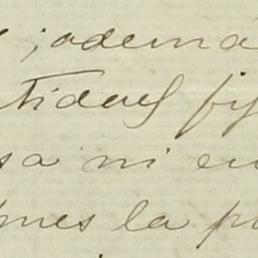 ; ademá
tidades fij
sa ni en
ones la p